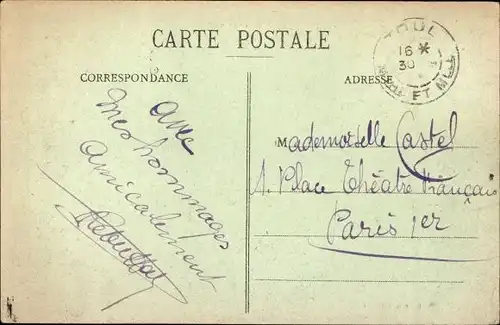 TOUL
16 *
30
MTHE ET MLLE
CARTE POSTALE
CORRESPONDANCE
ADRESSE
avec
mes hommages
amicalement
Mademoiselle Castel
1. Place Théâtre Français
Paris 1er